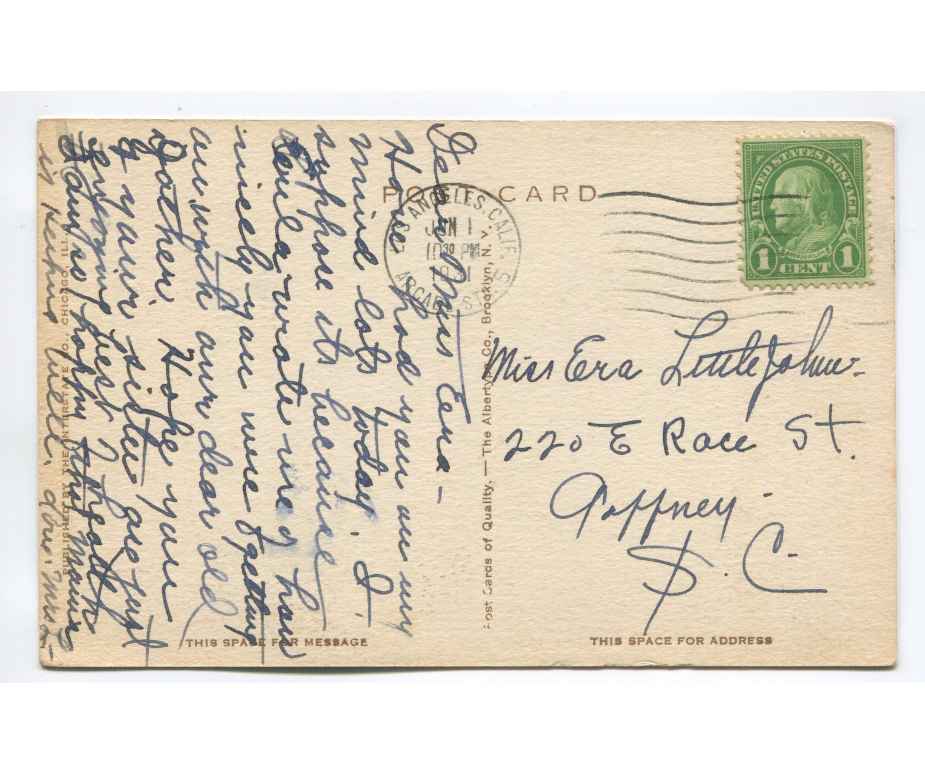 POST CARD
LOS ANGELES, CALIF.
JUN 1
10 30 PM
1931
ARCADE STA.
UNITED STATES POSTAGE
1 CENT 1
Dear Miss Eera -
Have had you on my
mind lots today. I
suppose its because
wrote me how
nicely you were getting
on with our dear old
Father. Hope you
& your sister are just
enjoying best health
Fannie
is keeping well.
Miss Era Littlejohn -
220 E Race St.
Gaffney -
S. C
Post Cards of Quality. — The Albertype Co., Brooklyn, N. Y.
PUBLISHED BY THE INTERSTATE CO., CHICAGO, ILL.
THIS SPACE FOR MESSAGE
THIS SPACE FOR ADDRESS